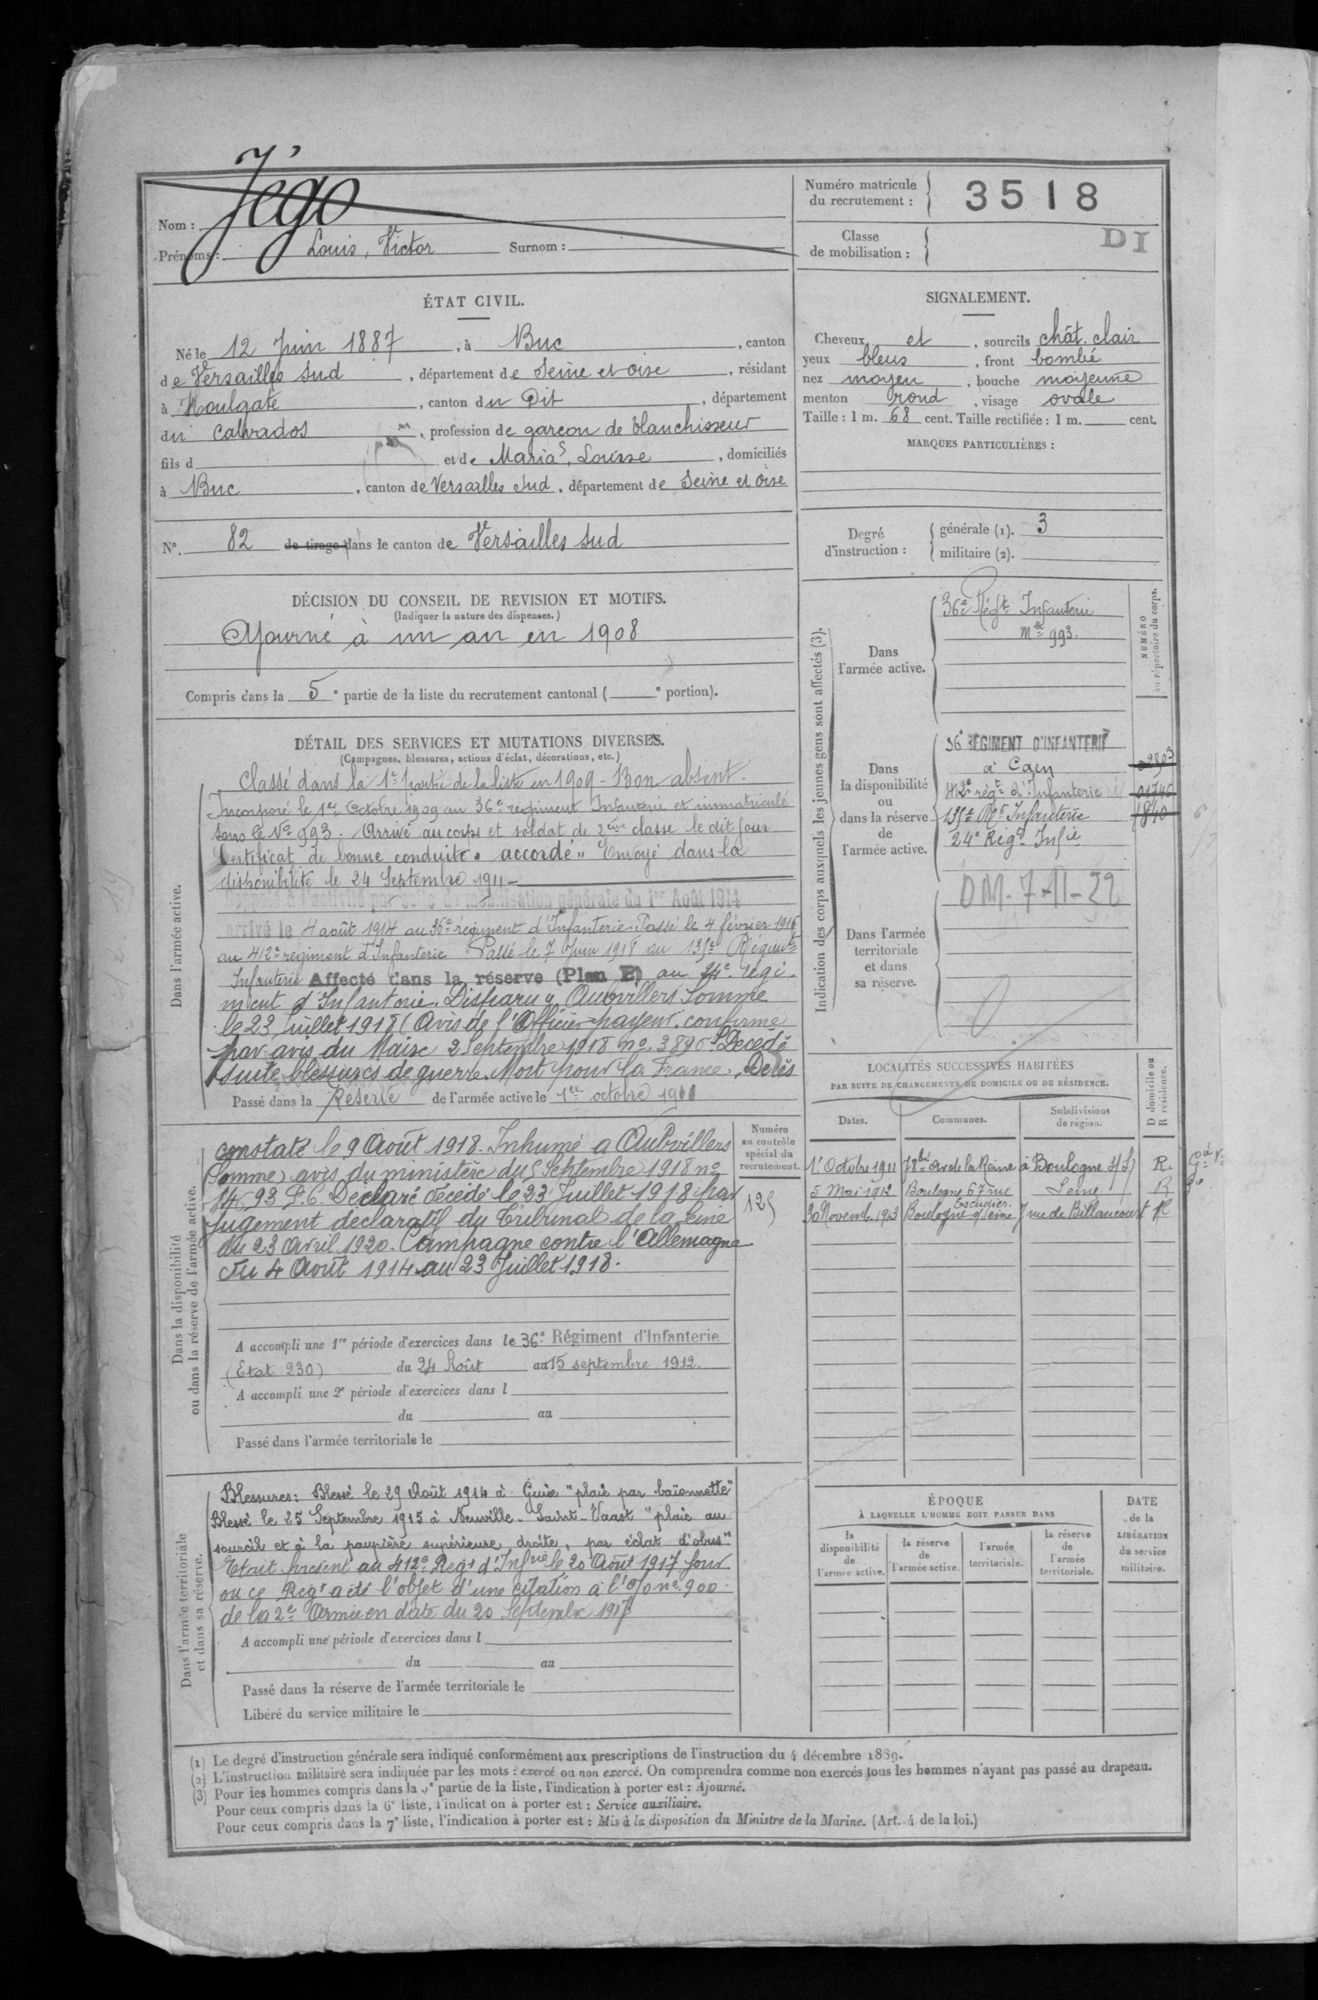 Jégo
Nom :
Prénoms : Louis, Victor Surnom :
Numéro matricule
du recrutement : 3518
Classe
de mobilisation :
DI
ÉTAT CIVIL.
Né le 12 Juin 1887, à Buc, canton
de Versailles Sud, département de Seine et Oise, résidant
à Houlgate, canton du Dit, département
du Calvados, profession de garçon de blanchisseur
fils d et de Maria, Louise, domiciliés
à Buc, canton de Versailles Sud, département de Seine et Oise
N°. 82 de tirage dans le canton de Versailles Sud
SIGNALEMENT.
Cheveux et, sourcils chât. clair
yeux bleus, front bombé
nez moyen, bouche moyenne
menton rond, visage ovale
Taille : 1 m. 68 cent. Taille rectifiée : 1 m. cent.
MARQUES PARTICULIÈRES :
Degré
d'instruction :
générale (1). 3
militaire (2).
DÉCISION DU CONSEIL DE REVISION ET MOTIFS.
(Indiquer la nature des dispenses.)
Ajourné à un an en 1908
Compris dans la 5e partie de la liste du recrutement cantonal ( e portion).
DÉTAIL DES SERVICES ET MUTATIONS DIVERSES.
(Campagnes, blessures, actions d'éclat, décorations, etc.)
Dans l'armée active.
Classé dans la 1re partie de la liste en 1909 - Bon absent.
Incorporé le 1er Octobre 1909 au 36e régiment Infanterie et immatriculé
sous le No 993. Arrivé au corps et soldat de 2ème classe le dit jour
Certificat de bonne conduite « accordé » Envoyé dans la
disponibilité le 24 Septembre 1911
Rappelé à l'activité par suite de mobilisation générale du 1er Août 1914
arrivé le 4 août 1914 au 36e régiment d'Infanterie. Passé le 4 février 1916
au 412e régiment d'Infanterie Passé le 7 Juin 1918 au
Infanterie Affecté dans la réserve (Plan E) au 24e régi-
ment d'Infanterie. Disparu à Aubvillers Somme
le 23 Juillet 1918 (Avis de l'Officier payeur. confirmé
par avis du Maire 2 Septembre 1918 no. Décédé
suite blessures de guerre. Mort pour la France. Décès
Passé dans la Réserve de l'armée active le 1er octobre 1911
Dans la disponibilité
ou dans la réserve de l'armée active.
constaté le 9 Août 1918. Inhumé à Aubvillers
(Somme) avis du ministère du 5 Septembre 1918 no
Déclaré décédé le 23 Juillet 1918 par
jugement déclaratif du Tribunal de la Seine
du 23 Avril 1920. Campagne contre l'Allemagne
du 4 Août 1914 au 23 Juillet 1918.
Numéro
au contrôle
spécial du
recrutement.
A accompli une 1re période d'exercices dans le 36e Régiment d'Infanterie
(Etat 230) du 24 Août au 15 septembre 1912.
A accompli une 2e période d'exercices dans l
du au
Passé dans l'armée territoriale le
Dans l'armée territoriale
et dans sa réserve.
Blessures : Blessé le 29 Août 1914 à Guise "plaie par baïonnette"
Blessé le 25 Septembre 1915 à Neuville-Saint-Vaast "plaie au
sourcil et à la paupière supérieure droite, par éclat d'obus"
Etait présent au 412e Regt d'Infie le 20 Août 1917 jour
où ce Regt a été l'objet d'une citation à l'O/ no 900
de la 2e Armée en date du 20 Septembre 1917
A accompli une période d'exercices dans l
du au
Passé dans la réserve de l'armée territoriale le
Libéré du service militaire le
Indication des corps auxquels les jeunes gens sont affectés (3).
NUMÉRO
au répertoire du corps.
Dans
l'armée active.
36e Régt Infanterie
Mle 993.
Dans
la disponibilité
ou
dans la réserve
de
l'armée active.
36e RÉGIMENT D'INFANTERIE
à Caen
412e régt d'Infanterie
Rt Infanterie
1840
24e Régt Infie
DM-7-11-22
Dans l'armée
territoriale
et dans
sa réserve.
LOCALITÉS SUCCESSIVES HABITÉES
PAR SUITE DE CHANGEMENTS DE DOMICILE OU DE RÉSIDENCE.
D domicile ou
R résidence.
Dates. Communes. Subdivisions
de région.
1er Octobre 1911 av de la Reine à Boulogne s/S R.
5 Mai 1912 Boulogne 67 rue Escudier. Seine R
30 Novemb. 1913 Boulogne s/Seine 7 rue de Billancourt R
ÉPOQUE
À LAQUELLE L'HOMME DOIT PASSER DANS
la
disponibilité
de
l'armée active.
la réserve
de
l'armée active.
l'armée
territoriale.
la réserve
de
l'armée
territoriale.
DATE
de la
LIBÉRATION
du service
militaire.
(1) Le degré d'instruction générale sera indiqué conformément aux prescriptions de l'instruction du 4 décembre 1889.
(2) L'instruction militaire sera indiquée par les mots : exercé ou non exercé. On comprendra comme non exercés tous les hommes n'ayant pas passé au drapeau.
(3) Pour les hommes compris dans la 5e partie de la liste, l'indication à porter est : Ajourné.
Pour ceux compris dans la 6e liste, l'indication à porter est : Service auxiliaire.
Pour ceux compris dans la 7e liste, l'indication à porter est : Mis à la disposition du Ministre de la Marine. (Art. 4 de la loi.)